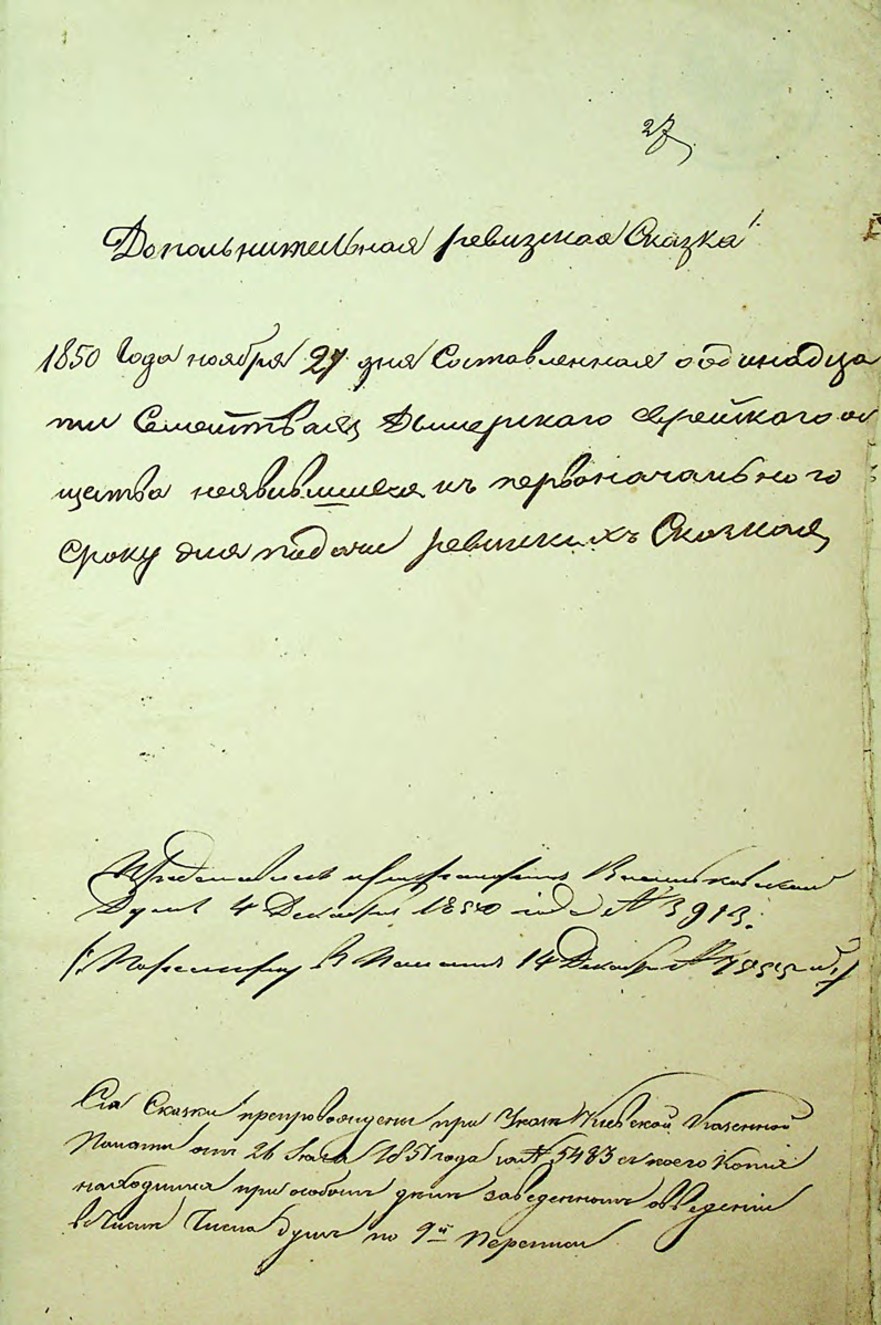 27
Дополнительная ревизская Сказка
1850 Года ноября 27 дня Составленная о одинадца
ти Семействахъ Дымерского еврейского об
щества неявившихся къ первоначального
сроку для подачи ревизкихъ Сказкахъ
при Васильковской
Думы 4 Декабря 1850 года № 3913.
в Палату 14 Декабря №
Сія Сказки препровождены при Указе Кіевской Казенной
Палаты отъ 26 1851 года за № 5483 с коего Копія
находится при особомъ деле заведенномъ о введеніи
Числа душъ по 9й Переписи